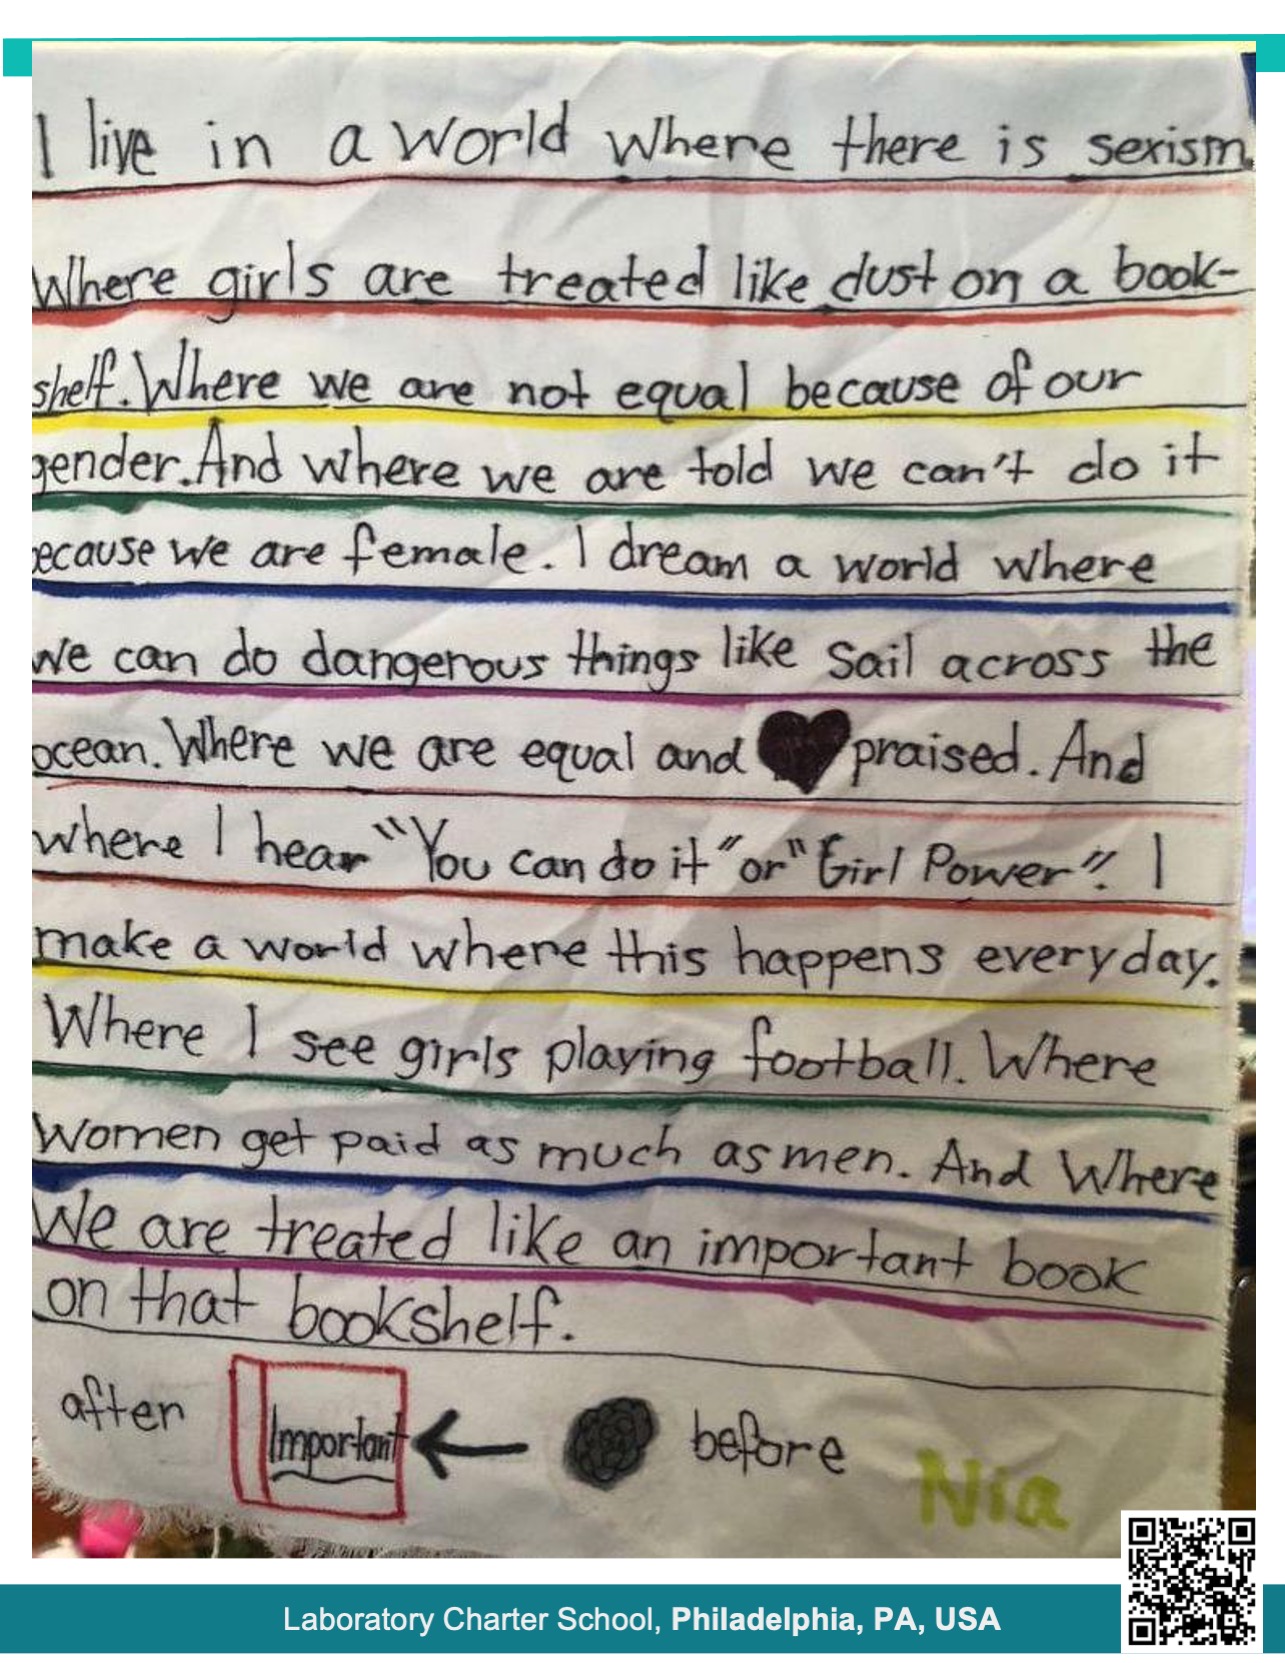 I live in a world where there is sexism.
Where girls are treated like dust on a book-
shelf. Where we are not equal because of our
gender. And where we are told we can't do it
ecause we are female. I dream a world where
we can do dangerous things like sail across the
ocean. Where we are equal and praised. And
where I hear "You can do it" or "Girl Power". I
make a world where this happens everyday.
Where I see girls playing football. Where
Women get paid as much as men. And Where
We are treated like an important book
on that bookshelf.
after Important before
Nia
Laboratory Charter School, Philadelphia, PA, USA